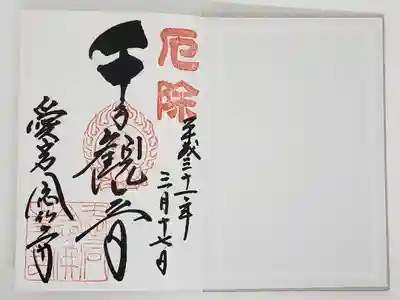 厄除
平成三十一年
三月十七日
千手觀音
愛宕念仏寺